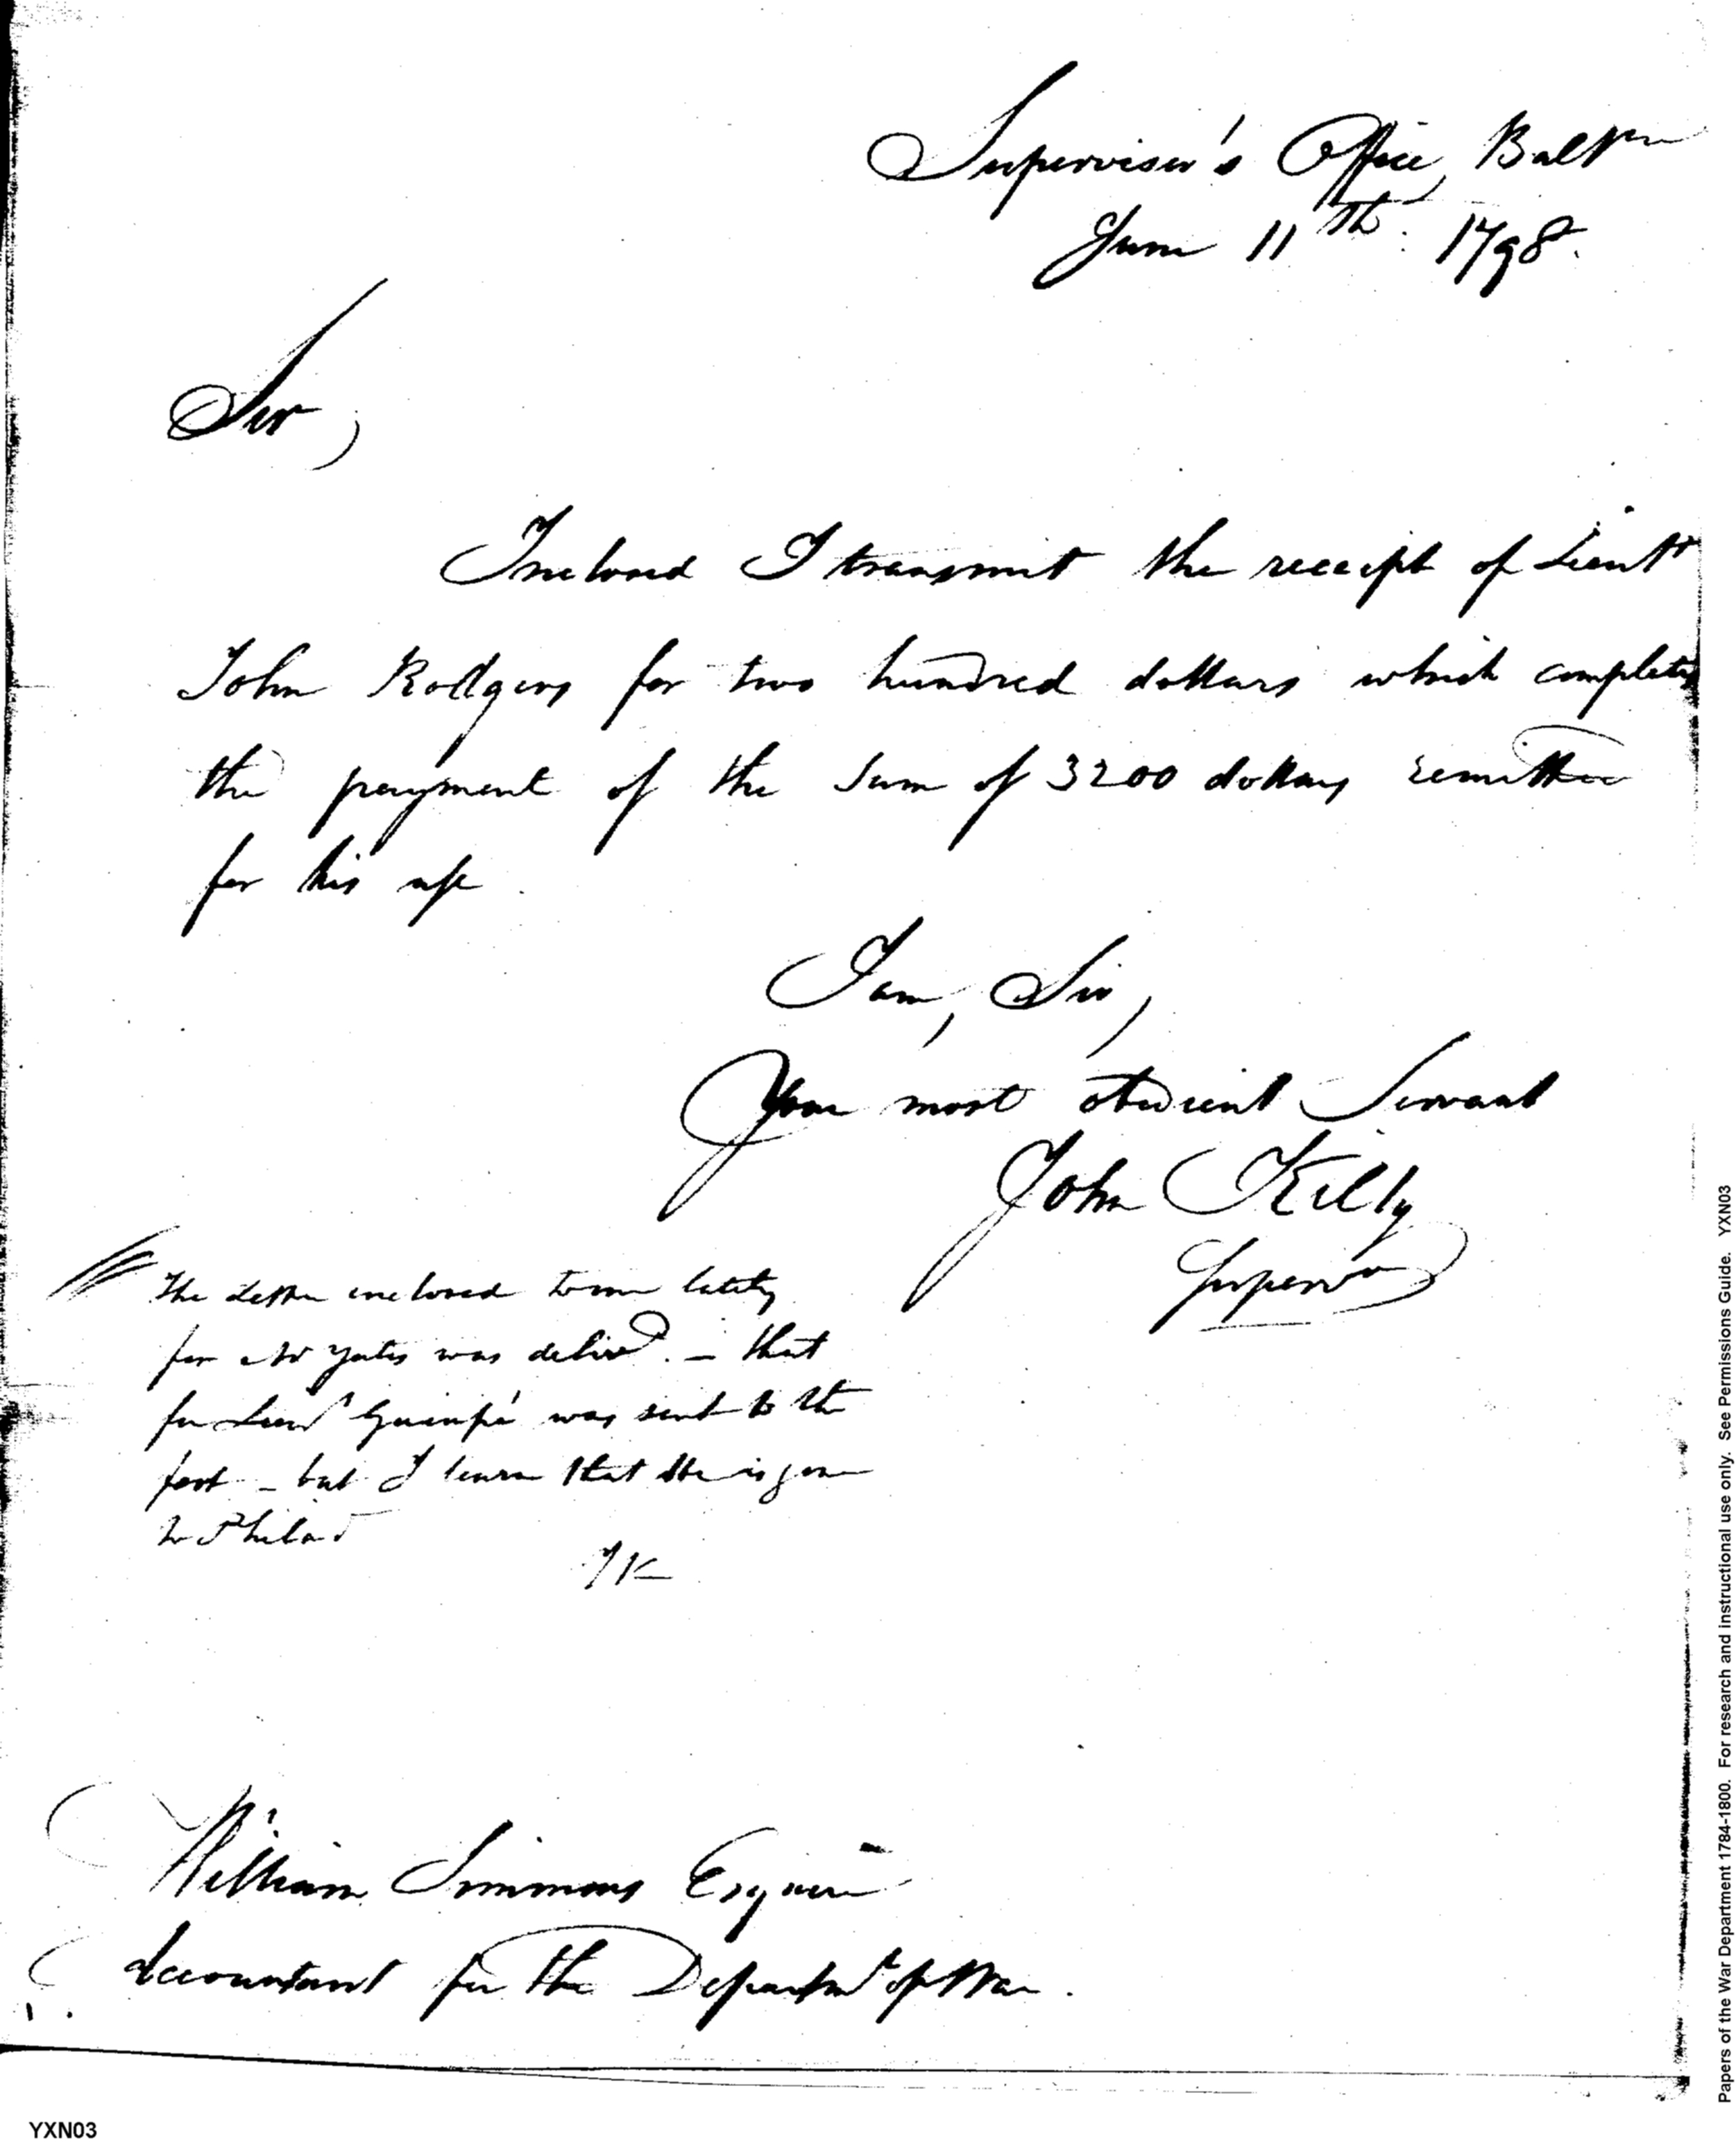 Supervisor's Office, Balt
June 11th. 1798.
Sir,
Inclosed I transmit the receipt of Lieutt
John Rodgers for two hundred dollars which completes
the payment of the sum of 3200 dollars remitted
for his use.
I am, Sir,
Your most obedient Servant
John Kilty
Supervr
The Letter inclosed to me lately
for Mr Yates was delivd. – that
for Lieut was sent to the
fort – but I learn that he is gone
to Philad
JK
William Simmons Esquire
Accountant for the Departmt of War.
YXN03
Papers of the War Department 1784-1800. For research and instructional use only. See Permissions Guide. YXN03